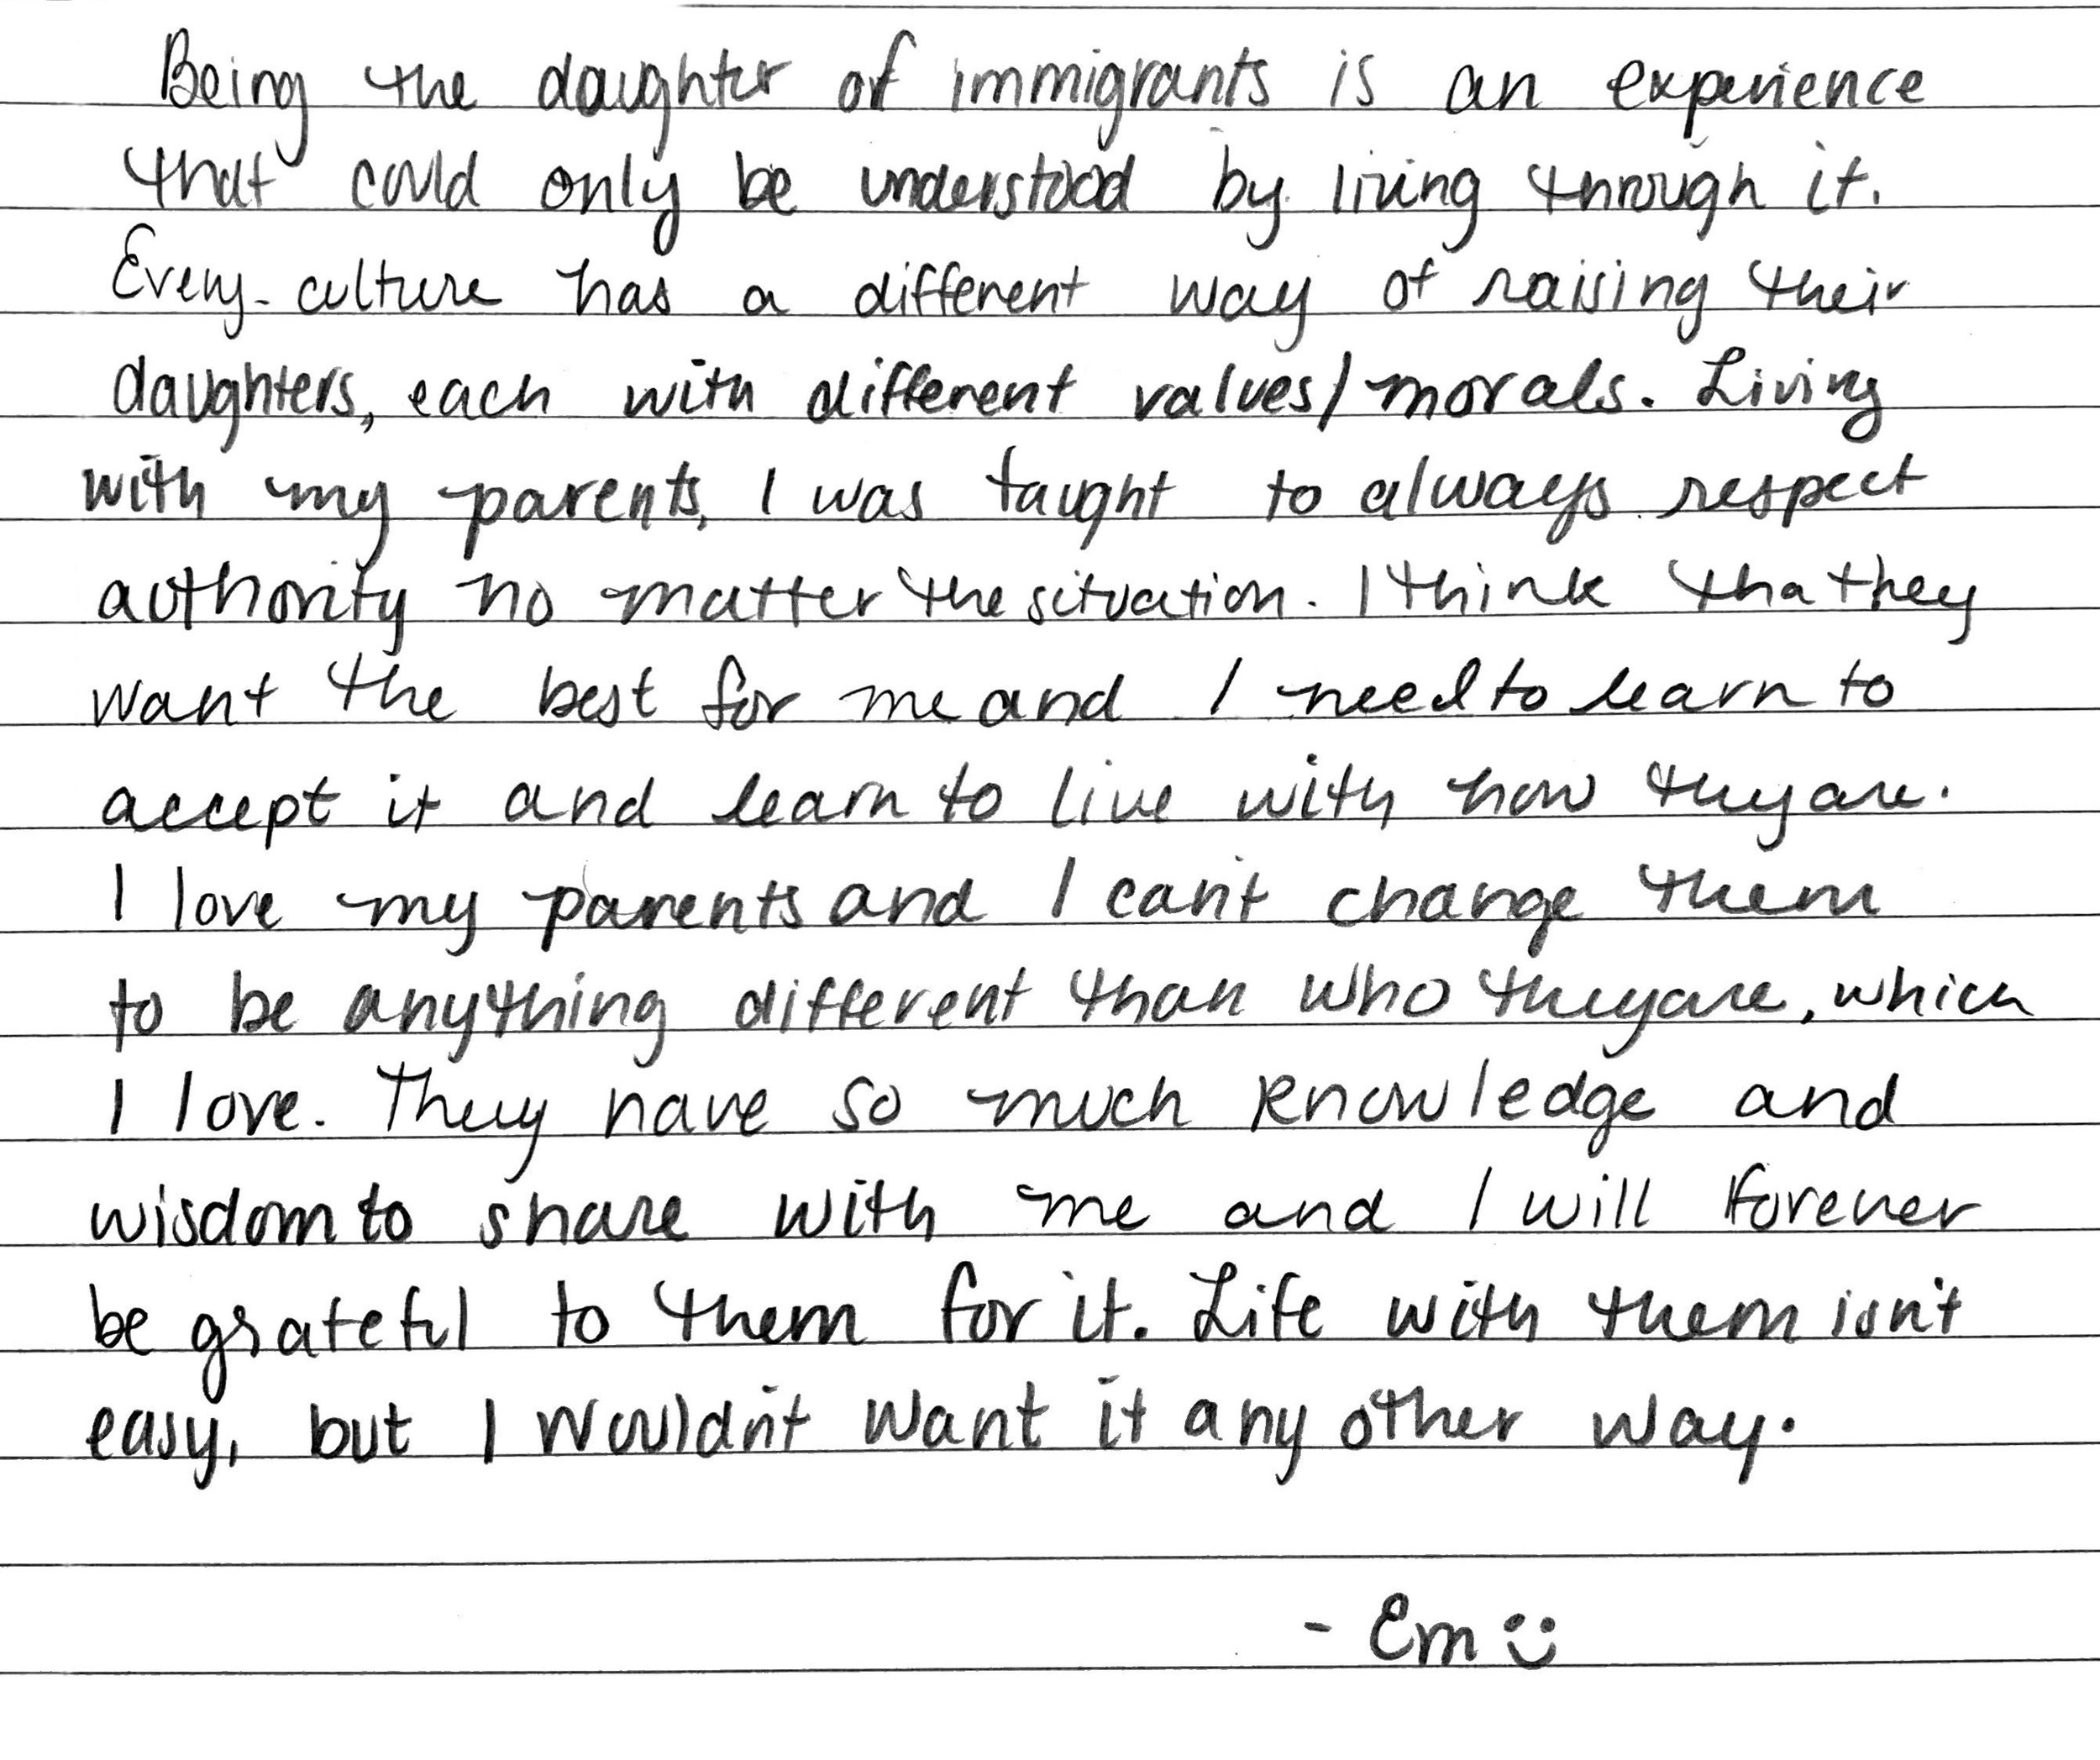 Being the daughter of immigrants is an experience
that could only be understood by living through it.
Every culture has a different way of raising their
daughters, each with different values/morals. Living
with my parents, I was taught to always respect
authority no matter the situation. I think tha they
want the best for me and I need to learn to
accept it and learn to live with how they are.
I love my parents and I can't change them
to be anything different than who they are, which
I love. They have so much knowledge and
wisdom to share with me and I will forever
be grateful to them for it. Life with them isn't
easy, but I wouldn't want it any other way.
- Em :)